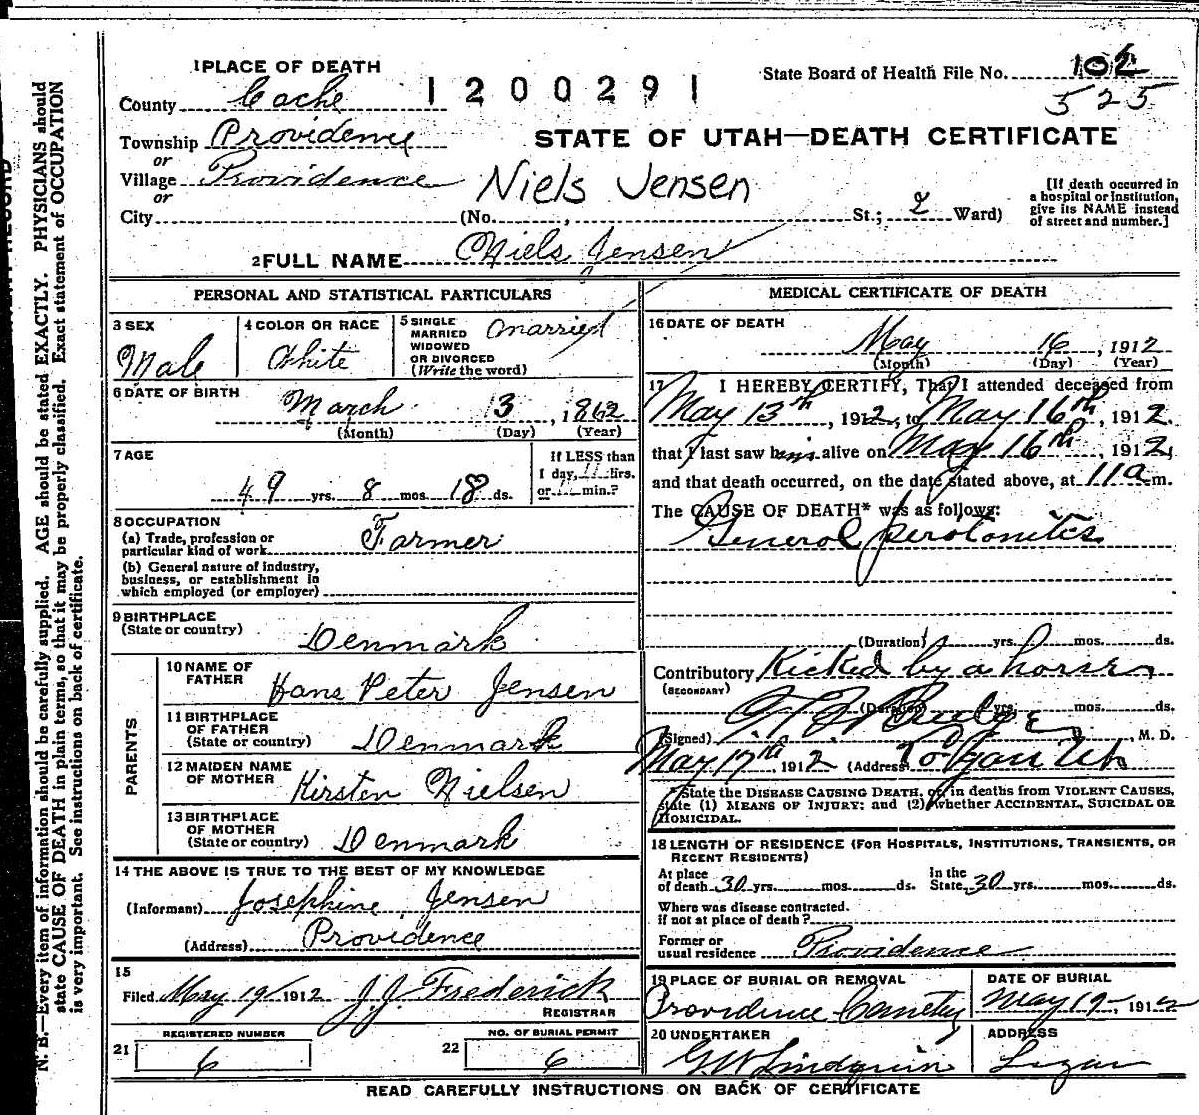 1 PLACE OF DEATH
1200291
State Board of Health File No. 102
525
County Cache
Township Providence
or
Village Providence
or
City
STATE OF UTAH—DEATH CERTIFICATE
Niels Jensen
(No. , St.; 2 Ward)
[If death occurred in
a hospital or institution,
give its NAME instead
of street and number.]
2 FULL NAME Niels Jensen
PERSONAL AND STATISTICAL PARTICULARS
3 SEX
Male
4 COLOR OR RACE
White
5 SINGLE
MARRIED
WIDOWED
OR DIVORCED
(Write the word)
Married
6 DATE OF BIRTH
March 3, 1862
(Month) (Day) (Year)
7 AGE
49 yrs. 8 mos. 18 ds.
If LESS than
1 day, hrs.
or min.?
8 OCCUPATION
(a) Trade, profession or
particular kind of work Farmer
(b) General nature of industry,
business, or establishment in
which employed (or employer)
9 BIRTHPLACE
(State or country)
Denmark
PARENTS
10 NAME OF
FATHER
Hans Peter Jensen
11 BIRTHPLACE
OF FATHER
(State or country)
Denmark
12 MAIDEN NAME
OF MOTHER
Kirsten Nielsen
13 BIRTHPLACE
OF MOTHER
(State or country)
Denmark
14 THE ABOVE IS TRUE TO THE BEST OF MY KNOWLEDGE
(Informant) Josephine Jensen
(Address) Providence
15
Filed May 19, 1912 J.J. Frederick
REGISTRAR
REGISTERED NUMBER
21 6
NO. OF BURIAL PERMIT
22 6
MEDICAL CERTIFICATE OF DEATH
16 DATE OF DEATH
May 16, 1912
(Month) (Day) (Year)
17 I HEREBY CERTIFY, That I attended deceased from
May 13th, 1912, to May 16th, 1912.
that I last saw him alive on May 16th, 1912,
and that death occurred, on the date stated above, at 11 a m.
The CAUSE OF DEATH* was as follows:
General perotonites
(Duration) yrs. mos. ds.
Contributory Kicked by a horse
(SECONDARY)
(Duration) yrs. mos. ds.
(Signed) , M. D.
May 17th, 1912 (Address) Logan Ut
*State the DISEASE CAUSING DEATH, or, in deaths from VIOLENT CAUSES,
state (1) MEANS OF INJURY; and (2) whether ACCIDENTAL, SUICIDAL OR
HOMICIDAL.
18 LENGTH OF RESIDENCE (FOR HOSPITALS, INSTITUTIONS, TRANSIENTS, OR
RECENT RESIDENTS)
At place
of death 30 yrs. mos. ds.
In the
State 30 yrs. mos. ds.
Where was disease contracted.
if not at place of death?
Former or
usual residence Providence
19 PLACE OF BURIAL OR REMOVAL
Providence Cemetery
DATE OF BURIAL
May 19, 1912
20 UNDERTAKER
G.W. Lindquist
ADDRESS
Logan
READ CAREFULLY INSTRUCTIONS ON BACK OF CERTIFICATE
N. B.—Every item of information should be carefully supplied. AGE should be stated EXACTLY. PHYSICIANS should
state CAUSE OF DEATH in plain terms, so that it may be properly classified. Exact statement of OCCUPATION
is very important. See instructions on back of certificate.